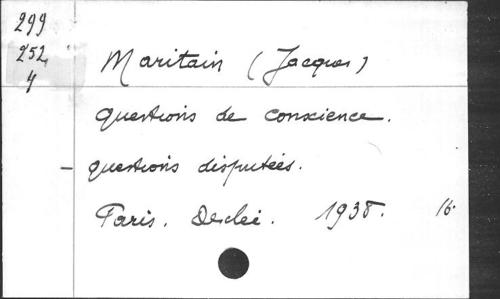 299
252
4
Maritain (Jacques)
questions de conscience.
– questions disputées.
Paris. Desclei. 1938. 16.